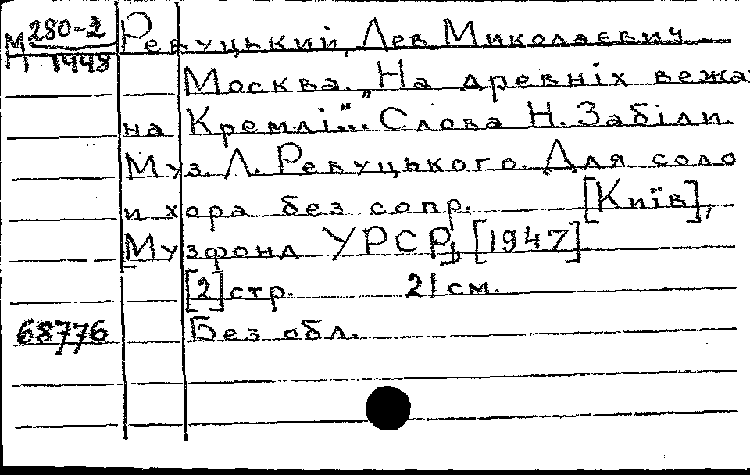 М 280-2 Ревуцький, Лев Миколаєвич.
П 1448
Москва. „На древніх вежа
на Кремлі"... Слова Н. Забіли.
Муз. Л. Ревуцького. Для соло
и хора без сопр. [Київ],
[Музфонд УРСР], [1947]
[2] стр. 21 см.
68776 Без обл.